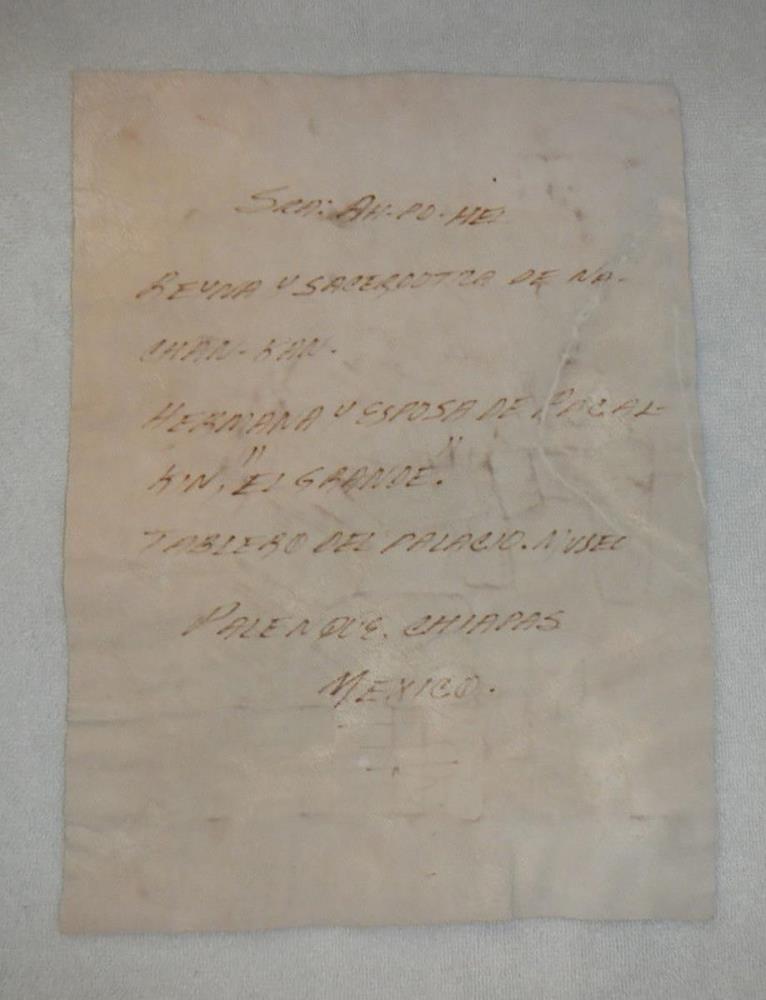 SRA: AH-PO-HEL
REYNA Y SACERDOTIZA DE NA-
CHAN-KAN.
HERMANA Y ESPOSA DE PACAL-
KIN, "EL GRANDE."
TABLERO DEL PALACIO. MUSEO
PALENQUE. CHIAPAS
MEXICO.